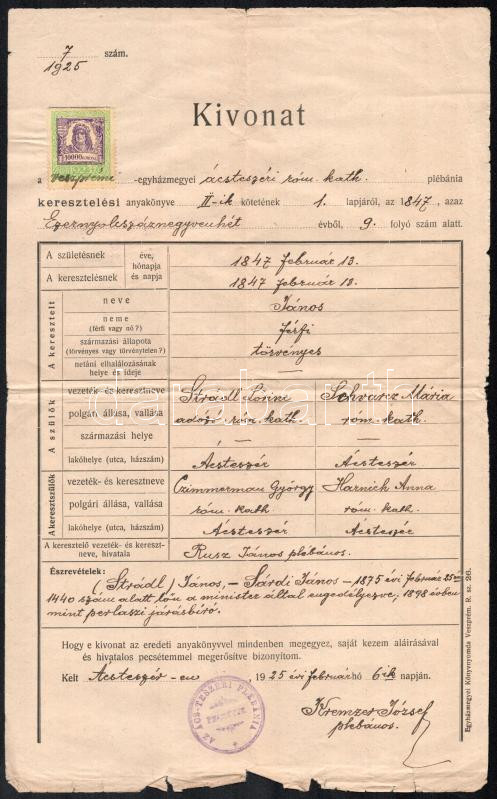 7
1925 szám.
Kivonat
10000 KORONA
a veszprémi -egyházmegyei ácsteszéri róm. kath. plébánia
keresztelési anyakönyve II-ik kötetének 1. lapjáról, az 1847, azaz
Ezernyolcszáznegyvenhét évből, 9. folyó szám alatt.
A születésnek éve, hónapja és napja 1847 február 13.
A keresztelésnek 1847 február 13.
A keresztelt
neve János
neme (férfi vagy nő?) férfi
származási állapota (törvényes vagy törvénytelen?) törvényes
netáni elhalálozásának helye és ideje —
A szülők
vezeték- és keresztneve Strádl Schvarcz Mária
polgári állása, vallása adózó róm. kath. róm. kath.
származási helye — —
lakóhelye (utca, házszám) Ácsteszér Ácsteszér
A keresztszülők
vezeték- és keresztneve Czimmerman György Harnich Anna
polgári állása, vallása róm. kath róm. kath.
lakóhelye (utca, házszám) Ácsteszér Ácsteszér
A keresztelő vezeték- és keresztneve, hivatala Rusz János plébános.
Észrevételek:
(Strádl) János, – Sárdi János – 1875 évi február 25 én
1440 szám alatt lőn a minister által engedélyezve, 1898 évben
mint perlaszi járásbíró.
Hogy e kivonat az eredeti anyakönyvvel mindenben megegyez, saját kezem aláírásával
és hivatalos pecsétemmel megerősítve bizonyítom.
Kelt Ácsteszér-en 1925 évi február hó 6-ik napján.
Kremzer József
plébános.
AZ ÁCS-TESZÉRI PLÉBÁNIA
Egyházmegyei Könyvnyomda Veszprém. R. sz. 26.
darabanth